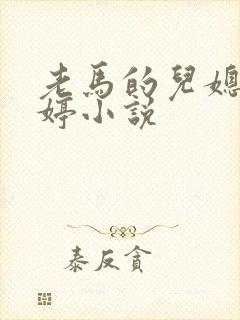 老馬的兒媳
婷小說
泰反貪